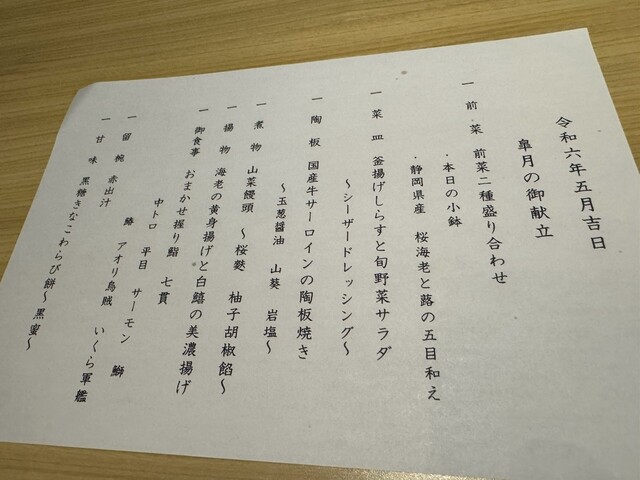 令和六年五月吉日
皐月の御献立
一 前 菜 前菜二種盛り合わせ
・本日の小鉢
・静岡県産 桜海老と蕗の五目和え
一 菜 皿 釜揚げしらすと旬野菜サラダ
～シーザードレッシング～
一 陶 板 国産牛サーロインの陶板焼き
～玉葱醤油 山葵 岩塩～
一 煮 物 山菜饅頭 ～桜麩 柚子胡椒餡～
一 揚 物 海老の黄身揚げと白鱚の美濃揚げ
一 御食事 おまかせ握り鮨 七貫
中トロ 平目 サーモン 鰤
鯵 アオリ烏賊 いくら軍艦
一 留 椀 赤出汁
一 甘 味 黒糖きなこわらび餅～黒蜜～